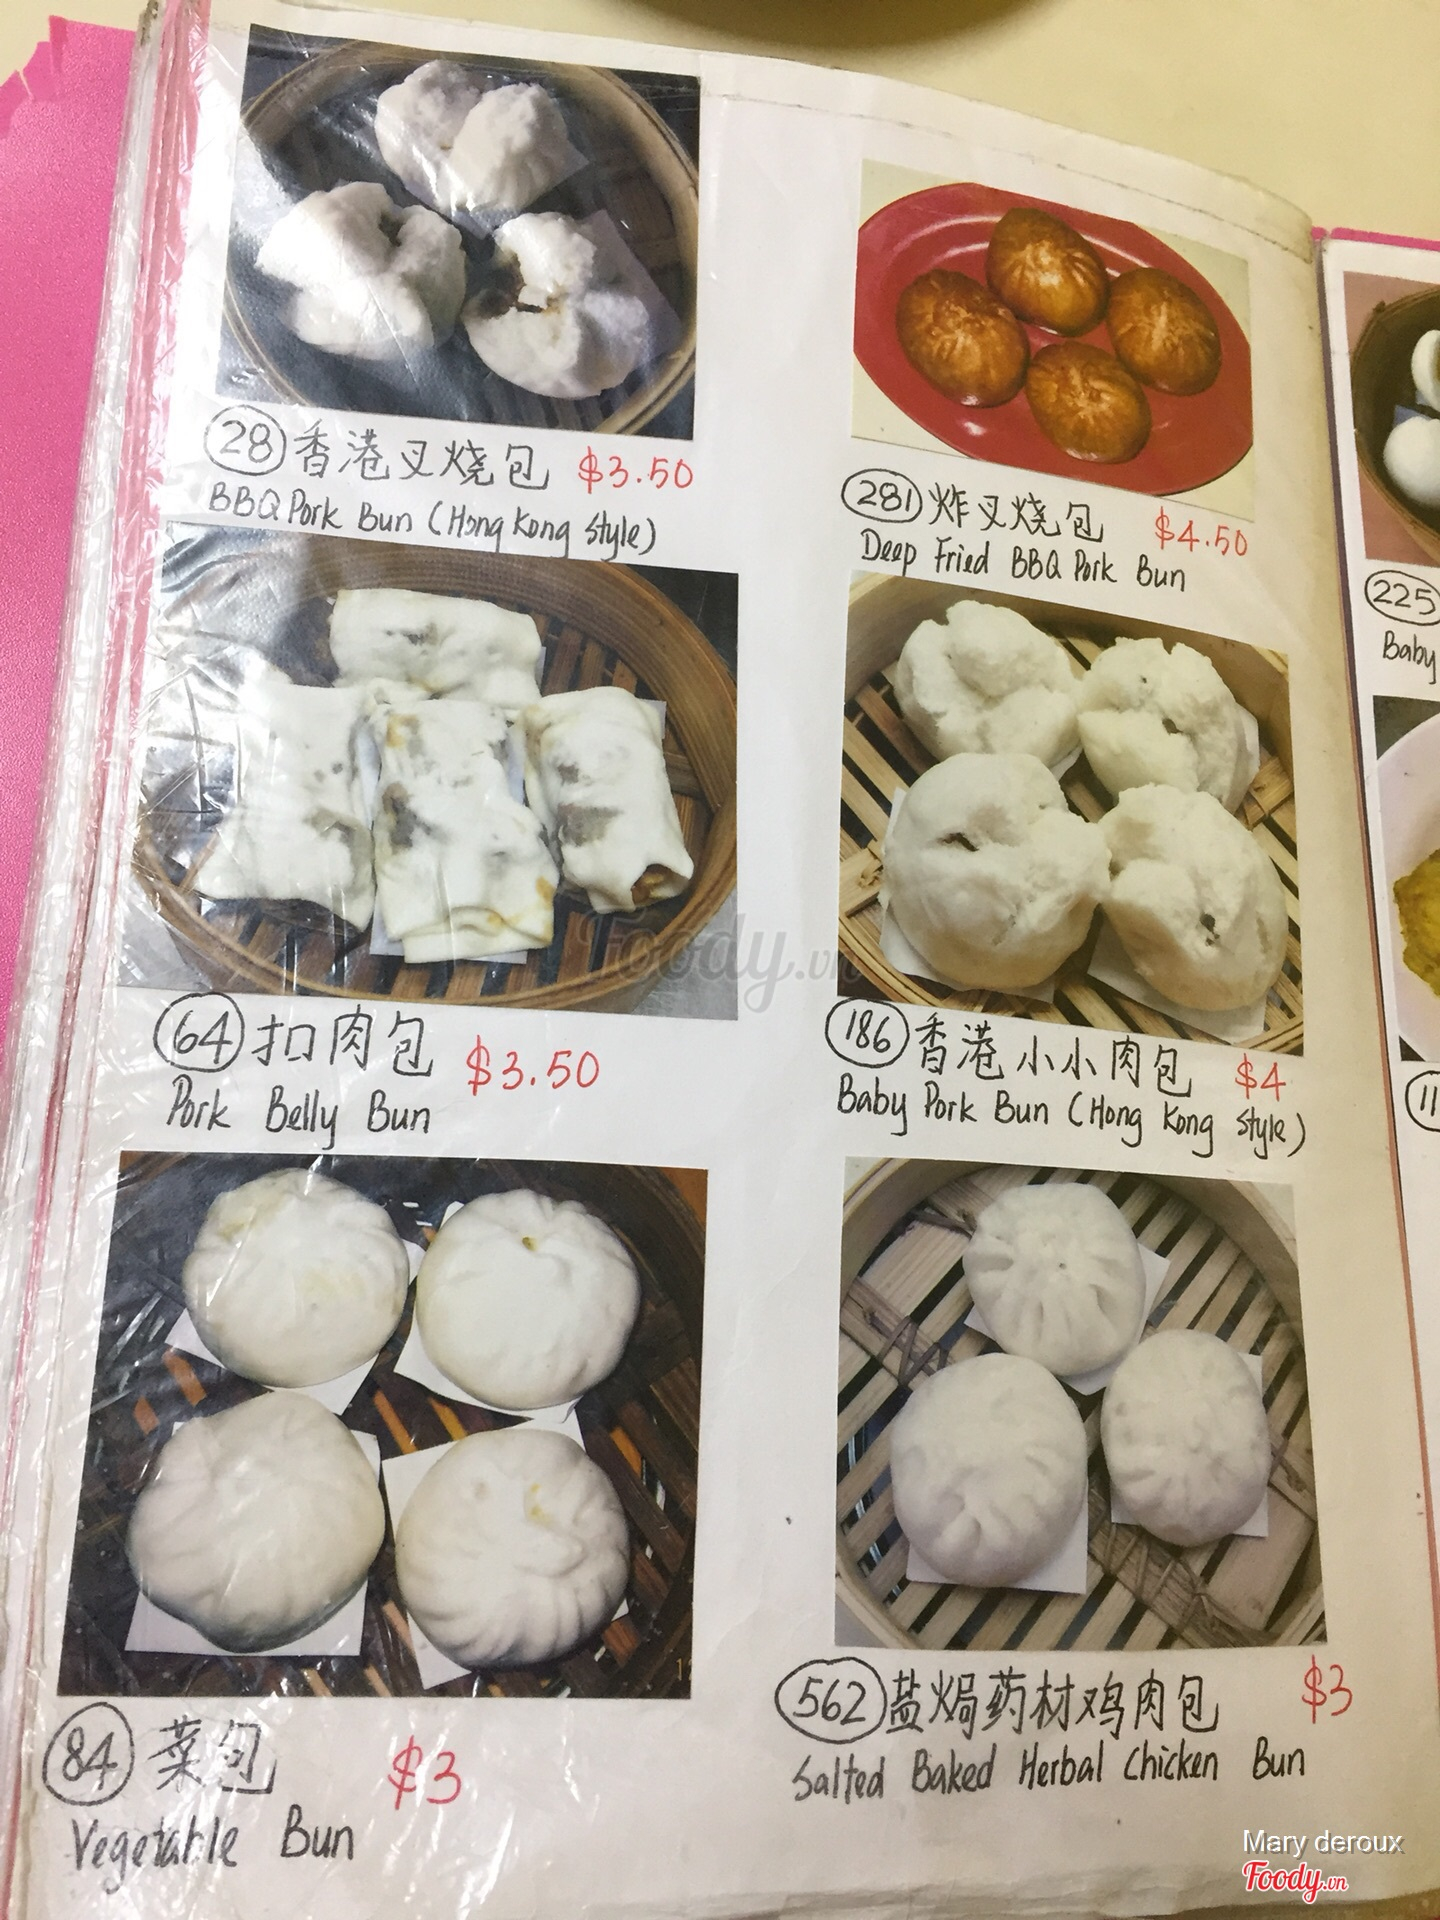 28 香港叉烧包 $3.50
BBQ Pork Bun (Hong Kong Style)
281 炸叉烧包 $4.50
Deep Fried BBQ Pork Bun
64 扣肉包 $3.50
Pork Belly Bun
186 香港小小肉包 $4
Baby Pork Bun (Hong Kong Style)
84 菜包 $3
Vegetable Bun
562 盐焗药材鸡肉包 $3
Salted Baked Herbal Chicken Bun
225
Baby
11
Foody.vn
Mary deroux
Foody.vn